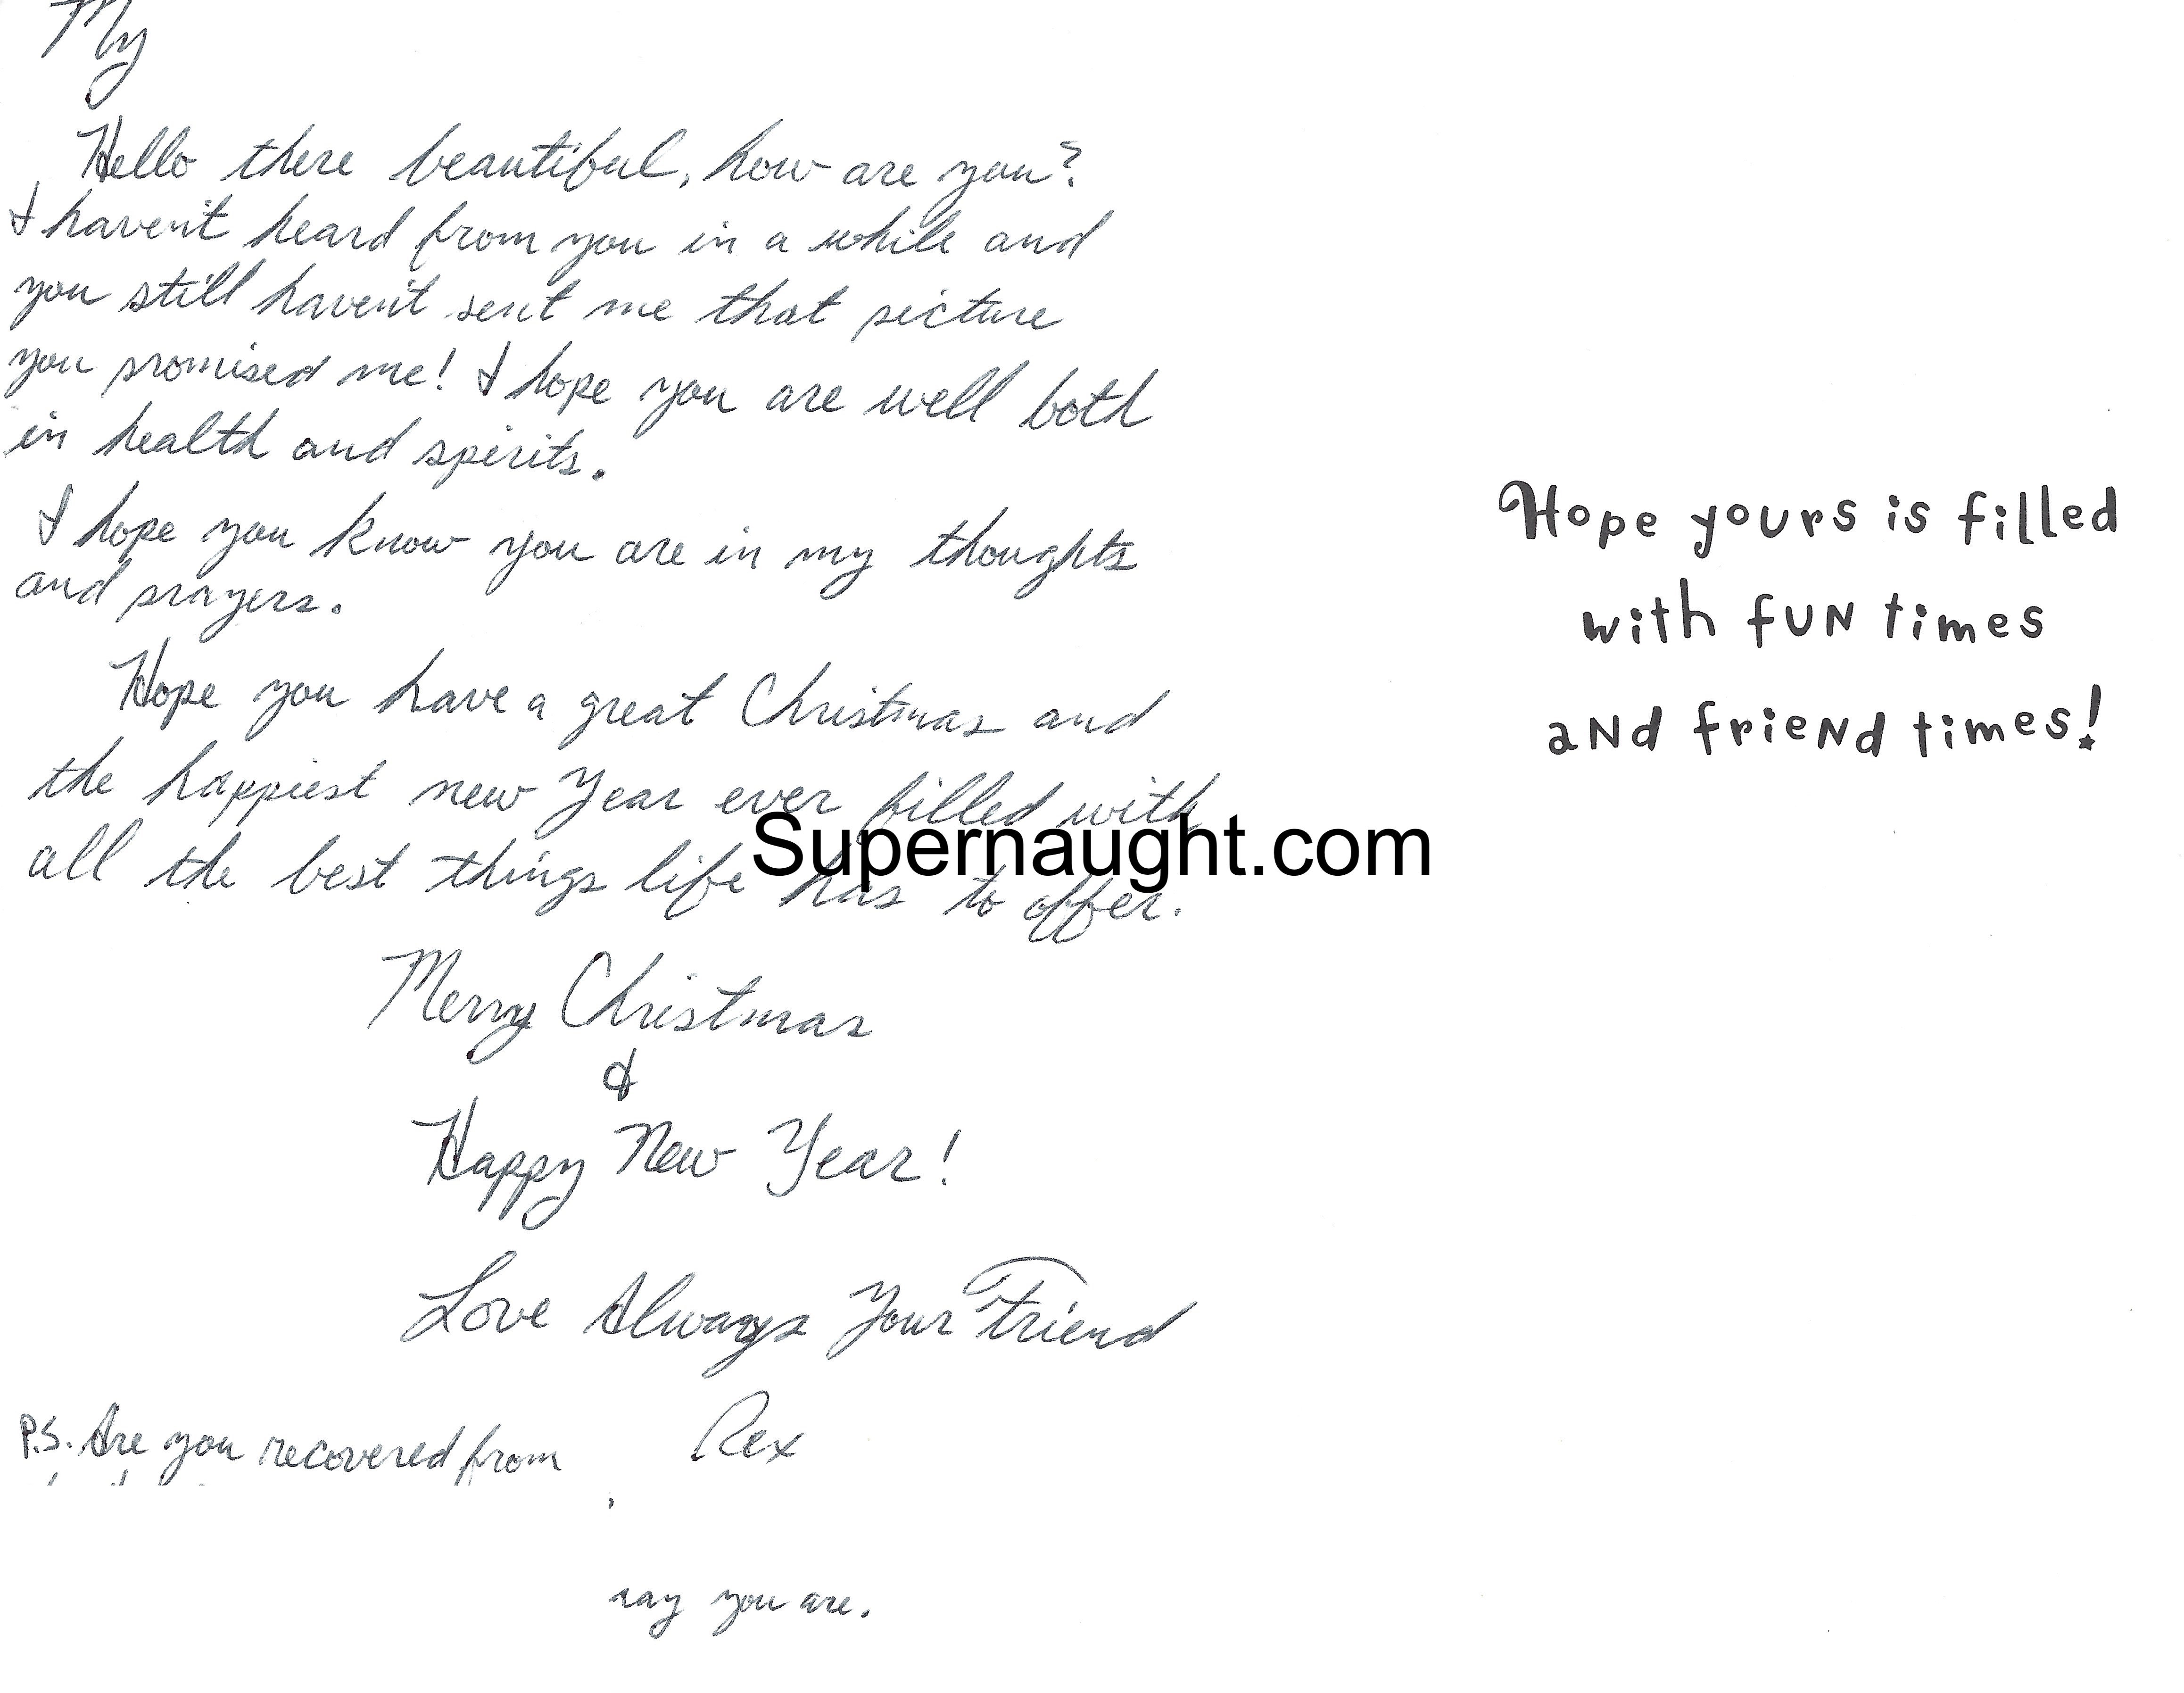 My
Hello there beautiful, how are you?
I haven't heard from you in a while and
you still haven't sent me that picture
you promised me! I hope you are well both
in health and spirits.
I hope you know you are in my thoughts
and prayers.
Hope you have a great Christmas and
the happiest new Year ever filled with
all the best things life has to offer.
Merry Christmas
&
Happy New Year!
Love Always Your Friend
Rex
P.S. Are you recovered from
you are.
Hope yours is filled
with fun times
and friend times!
Supernaught.com